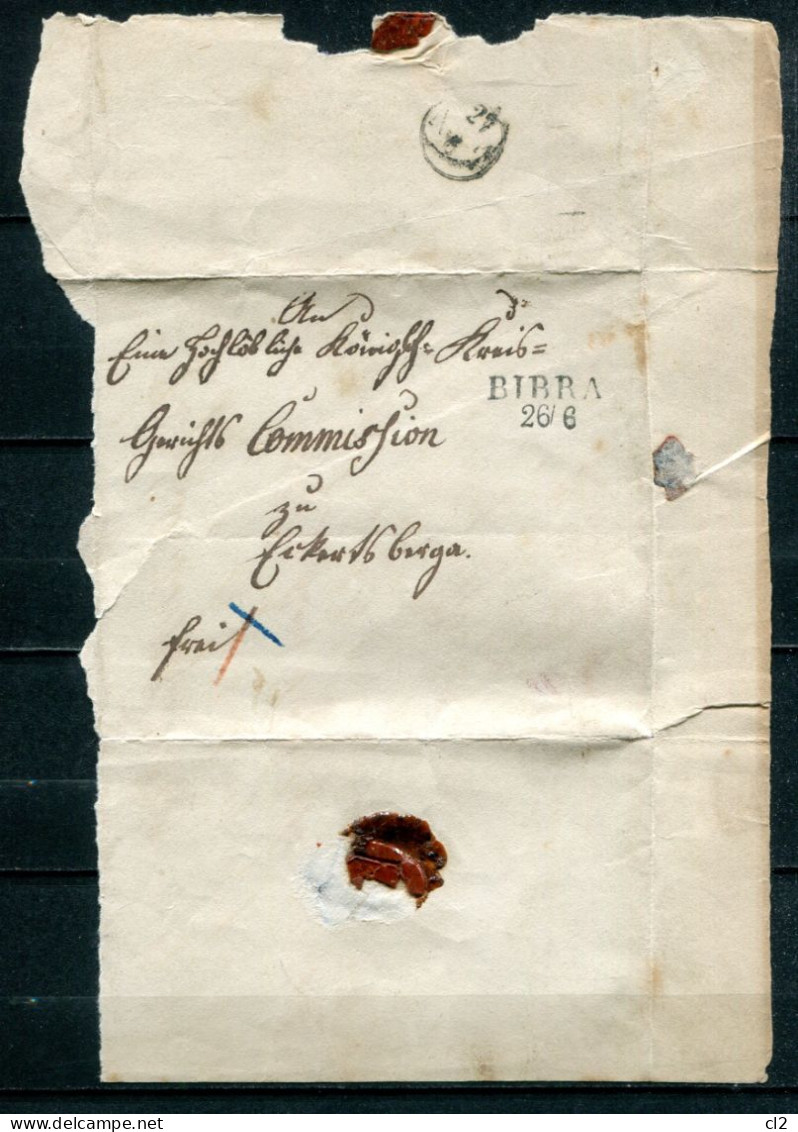 27
An
Eine Hochlöbliche Königlich Kreis=
BIBRA
26/6
Gerichts Commission
zu
Eckertsberga.
frei
cl2